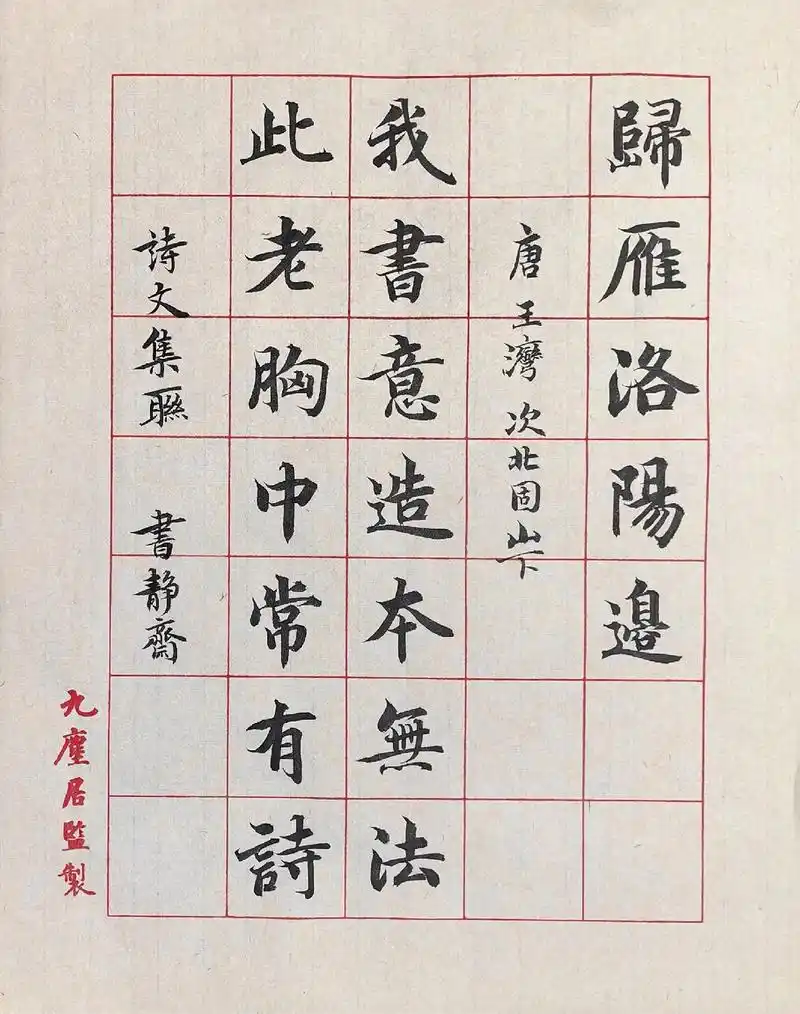 歸雁洛陽邊
唐王灣次北固山下
我書意造本無法
此老胸中常有詩
詩文集聯 書静齋
九塵居監製